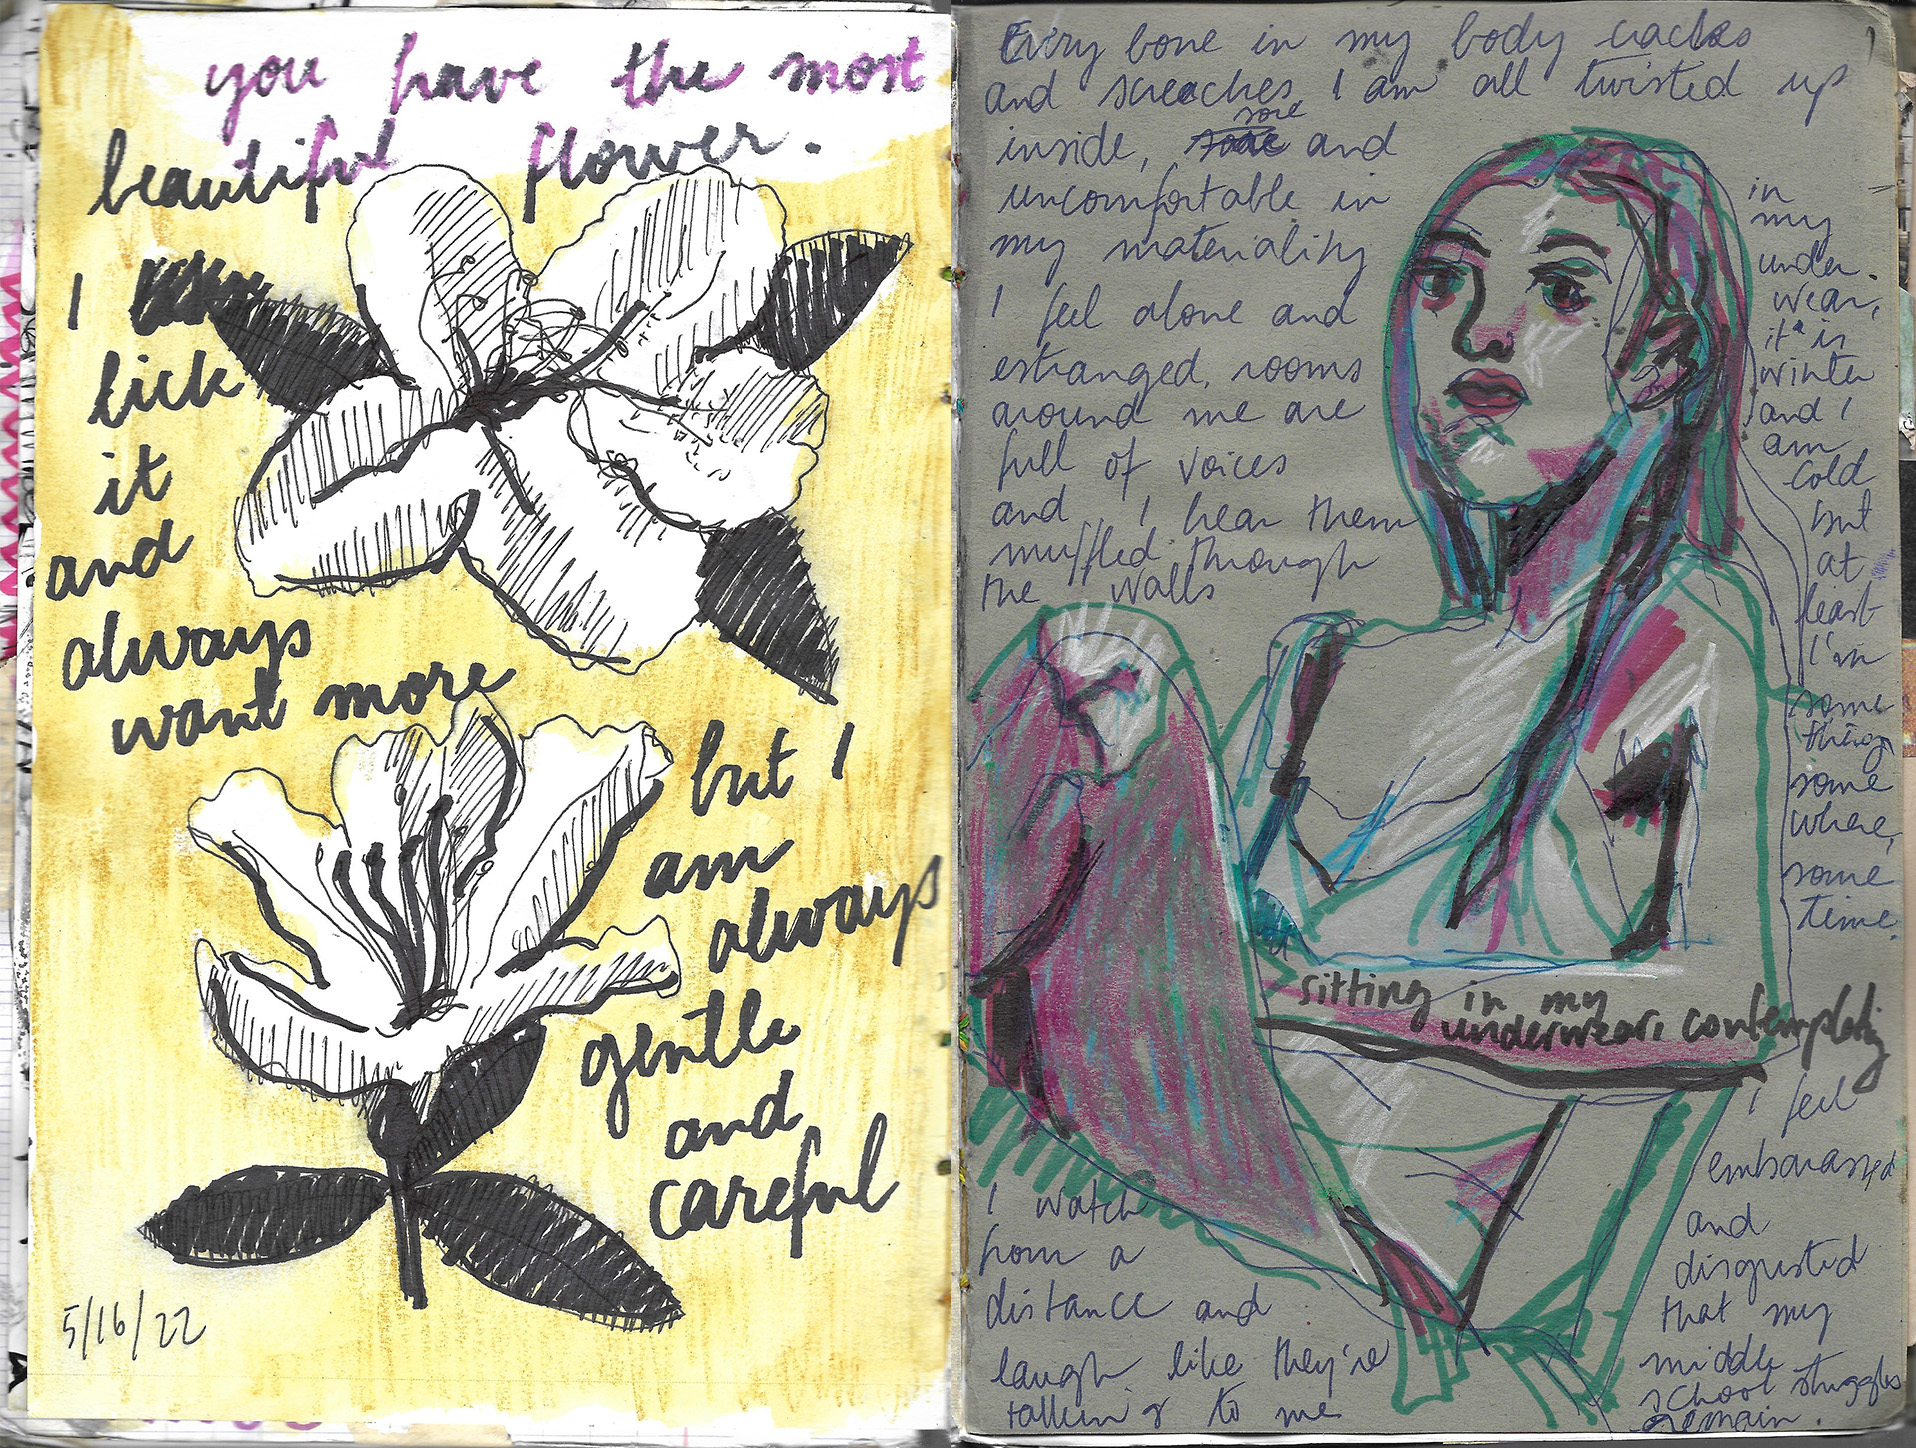 you have the most
beautiful flower.
I
lick
it
and
always
want more
but I
am
always
gentle
and
careful
5/16/22
Every bone in my body cracks
and screaches, I am all twisted up
inside, sore and
uncomfortable in
my materiality
I feel alone and
estranged, rooms
around me are
full of voices
and I hear them
muffled through
the walls
in
my
under.
wear,
it is
winter
and I
am
cold
but
at
least
I'm
some
thing
some
where,
some
time.
sitting in my
underwear, contemplating
I watch
from a
distance and
laugh like they're
talking to me
I feel
embarassed
and
disgusted
that my
middle
school struggles
remain.